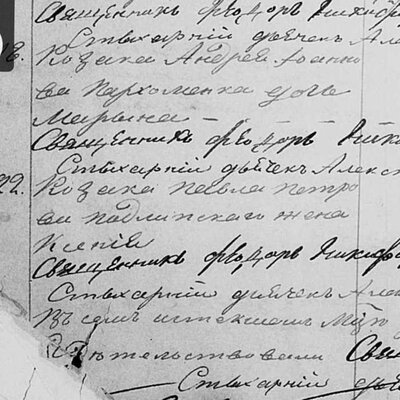 Священникъ Ѳеодоръ Никифо
Стихарній дьячекъ Але
18. Козака Андрея Іоанно
ва Пархоменка дочь
Марина –
Священникъ Ѳеодоръ Ники
Стихарній дьячекъ Алекс
22. Козака Павла Петро
ва Подлинскаго жена
Ксенія
Священникъ Ѳеодоръ Никифо
Стихарній дьячекъ Але
Въ семъ истекшемъ
Свидетельствовали Свя
Стихарній дья